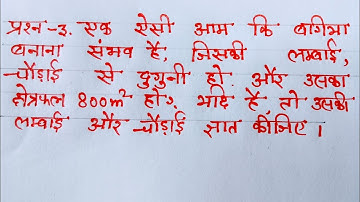 प्रश्न-3. एक ऐसी आम कि बगिचा
बनाना संभव है, जिसकी लम्बाई,
चौड़ाई से दुगुनी हो. और उसका
क्षेत्रफल 800m² हो?. यदि है तो उसकी
लम्बाई और चौड़ाई ज्ञात कीजिए।